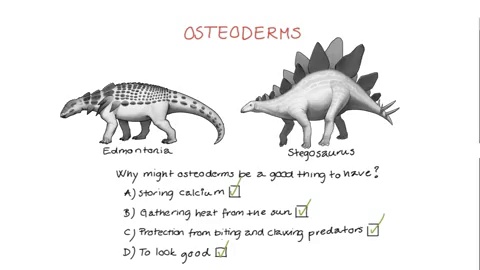 OSTEODERMS
Edmontonia
Stegosaurus
Why might osteoderms be a good thing to have?
A) Storing calcium
B) Gathering heat from the sun
C) Protection from biting and clawing predators
D) To look good